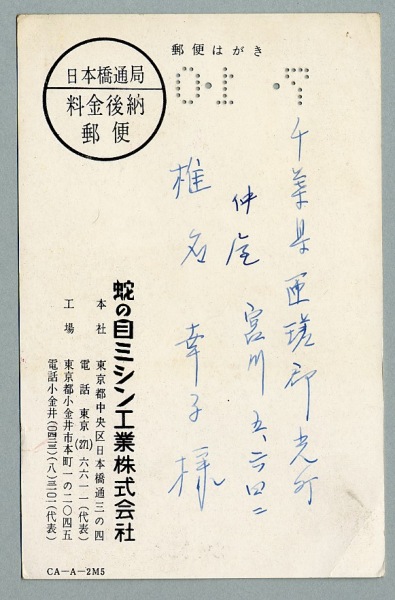 郵便はがき
日本橋通局
料金後納
郵便
千葉県匝瑳郡光町
宮川五、六四二
仲屋
椎名幸子様
蛇の目ミシン工業株式会社
本社 東京都中央区日本橋通三の四
電話 東京(271)六六一一(代表)
工場 東京都小金井市本町一の二〇四五
電話小金井(〇四二三)(八)三一〇一(代表)
CA—A—2M5